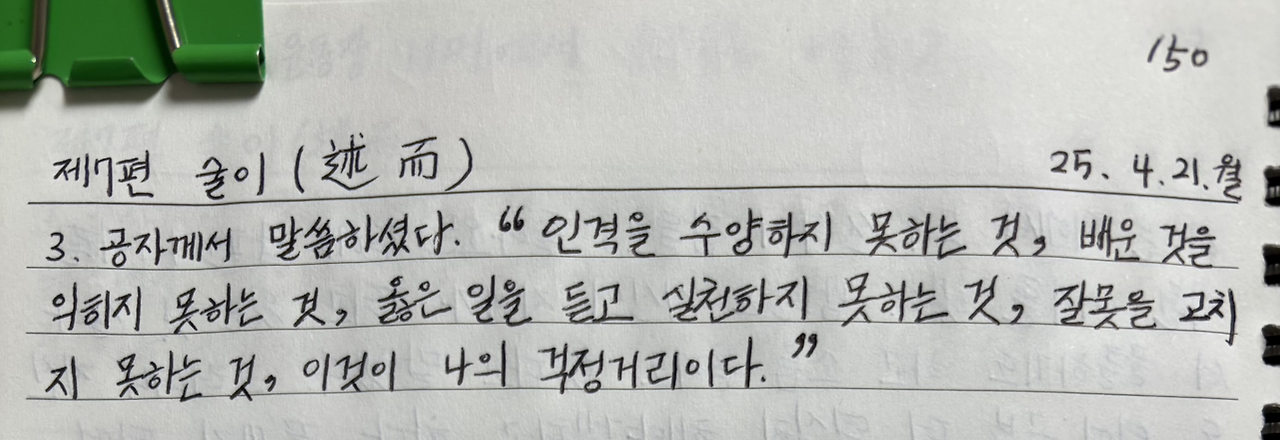 150
제7편 술이 (述而) 25. 4. 21. 월
3. 공자께서 말씀하셨다. “인격을 수양하지 못하는 것, 배운 것을
익히지 못하는 것, 옳은 일을 듣고 실천하지 못하는 것, 잘못을 고치
지 못하는 것, 이것이 나의 걱정거리이다.”